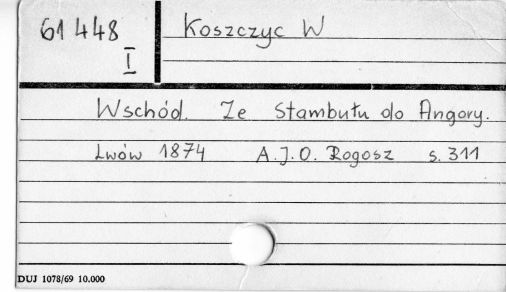 61448
I
Koszczyc W
Wschód. Ze Stambułu do Angory.
Lwów 1874 A.J.O. Rogosz s. 311
DUJ 1078/69 10.000